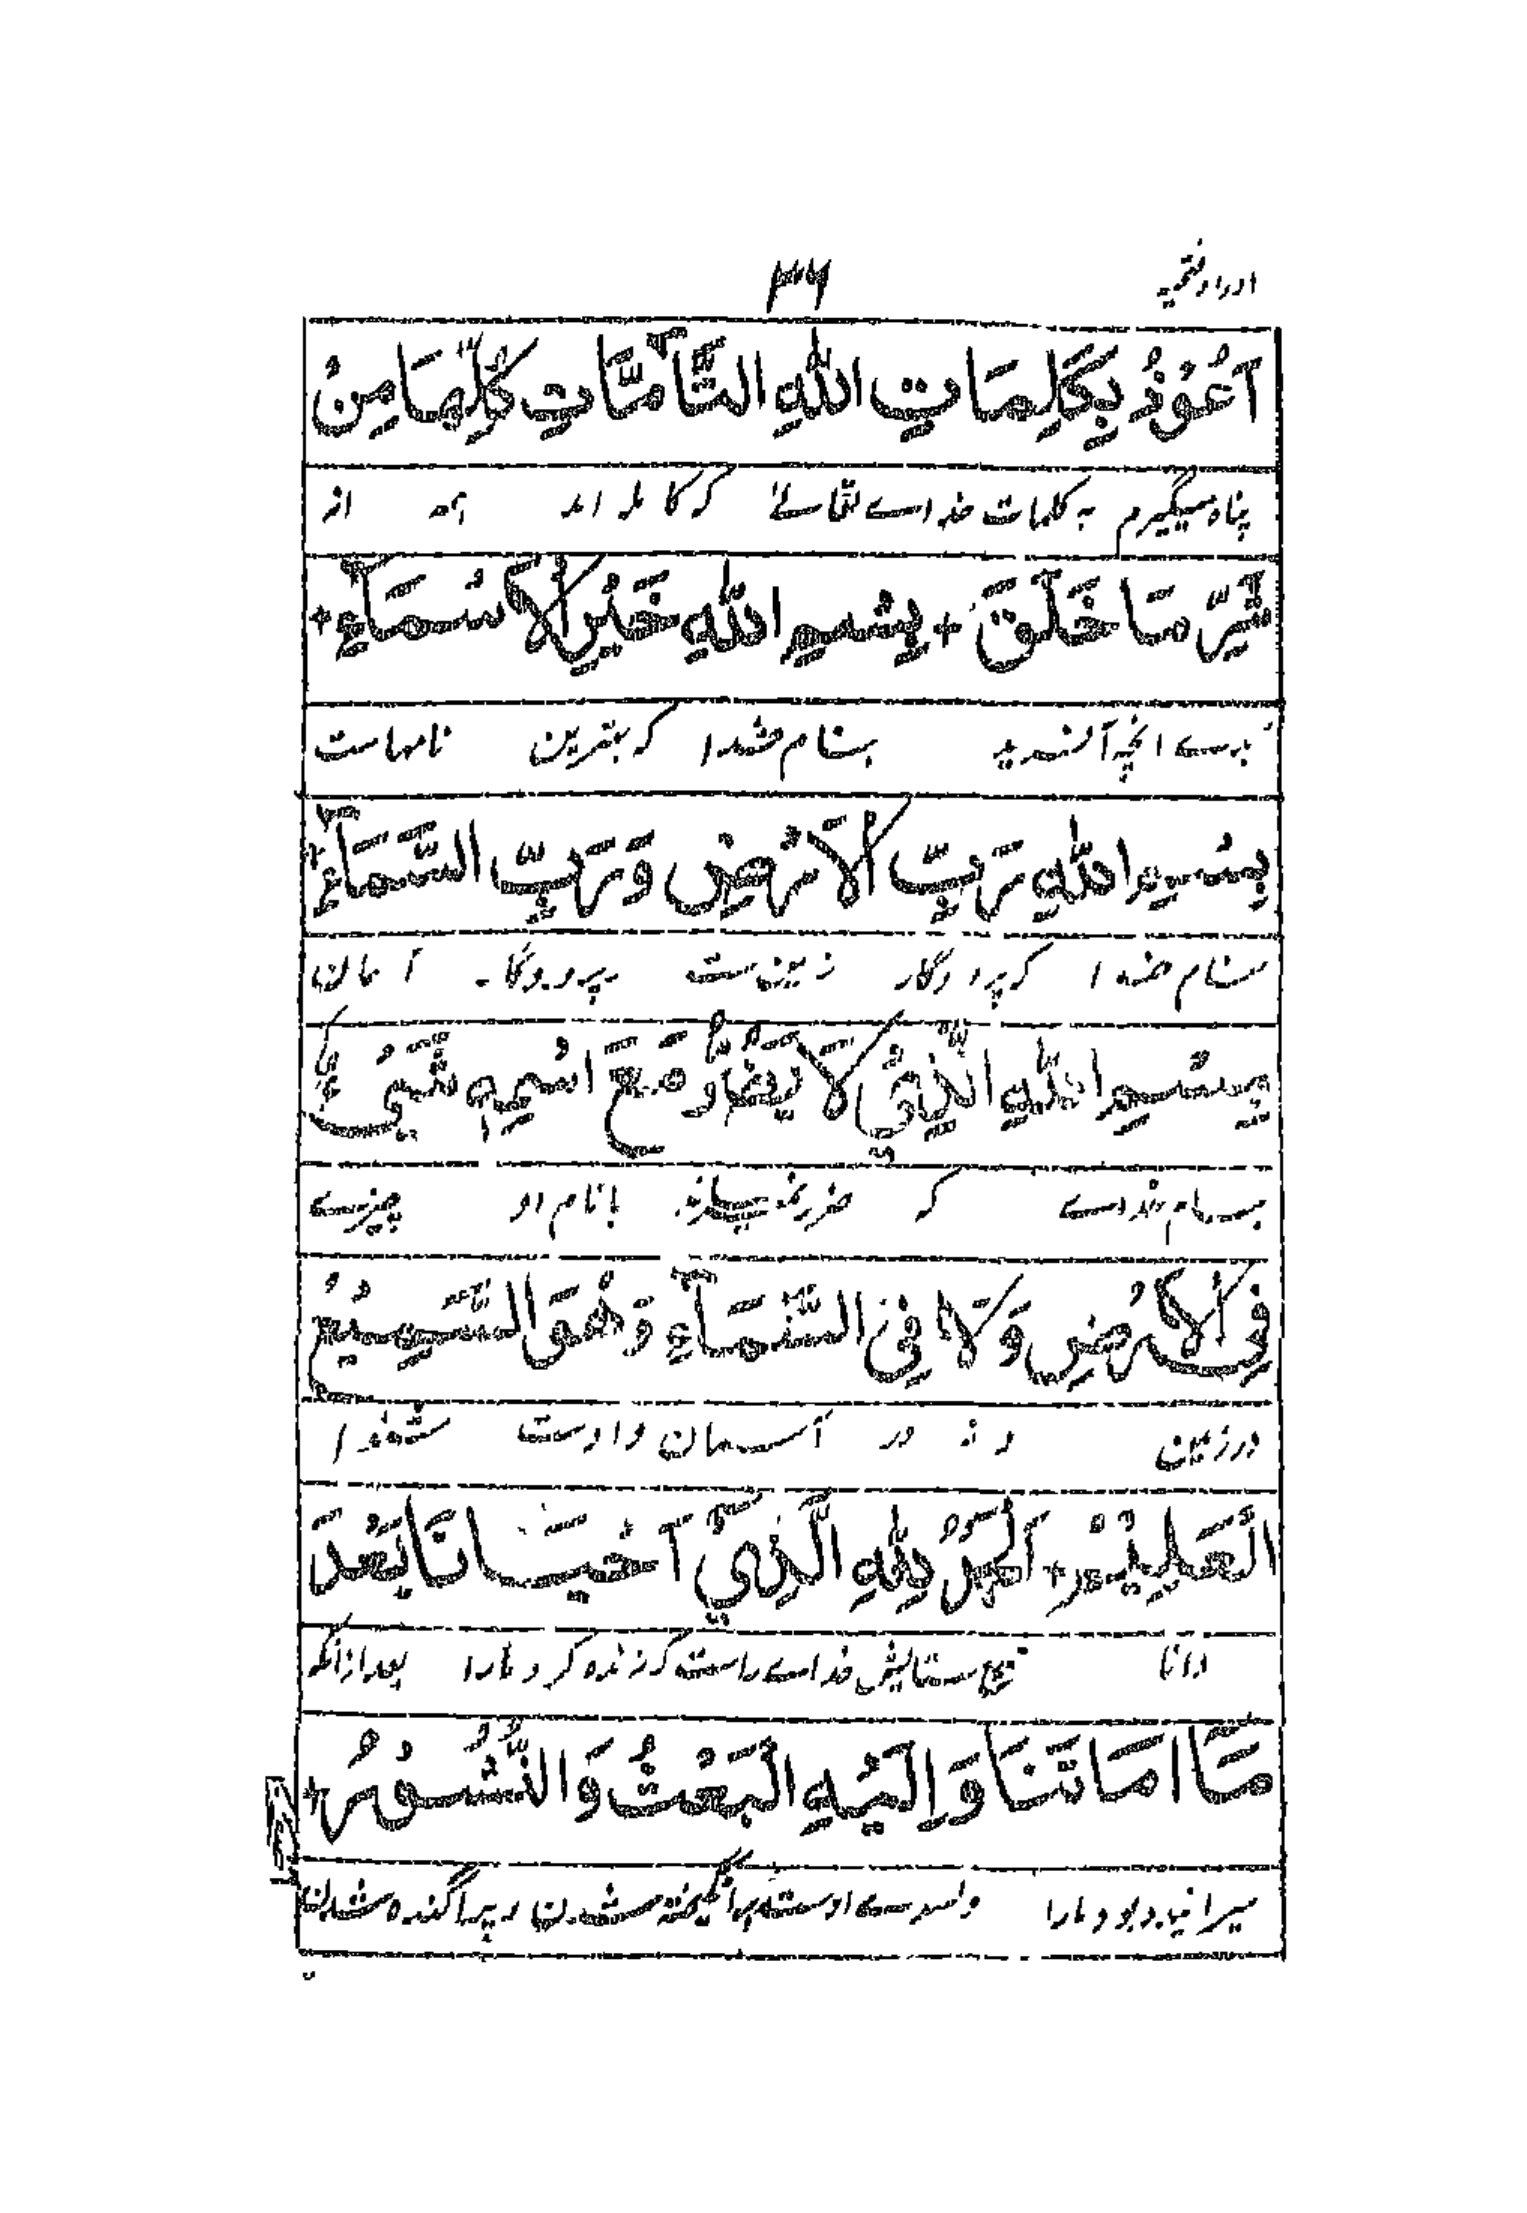 اوراد فتحیه
۳۶
اَعُوْذُ بِكَلِمَاتِ اللهِ التَّآمَّاتِ كُلِّهَا مِنْ
پناه میگیرم به کلمات خداے تعالےٰ که کامله اند همه از
شَرِّ مَا خَلَقَ + بِسْمِ اللهِ خَيْرِ الْاَسْمَآءِ +
بدے انچه آفرید بنام خدا که بهترین نامهاست
بِسْمِ اللهِ رَبِّ الْاَرْضِ وَرَبِّ السَّمَآءِ +
بنام خدا که پروردگار زمین ست پروردگار آسمان
بِسْمِ اللهِ الَّذِيْ لَا يَضُرُّ مَعَ اسْمِهٖ شَيْءٌ
بنام خداے که ضرر نمیسازد با نام او چیزے
فِي الْاَرْضِ وَلَا فِي السَّمَآءِ وَهُوَ السَّمِيْعُ
در زمین و نه در آسمان و اوست شنوا
الْعَلِيْمُ + اَلْحَمْدُ لِلهِ الَّذِيْٓ اَحْيَانَا بَعْدَ
دانا جمیع ستایش خداے راست که زنده کرد مارا بعد ازانکه
مَا اَمَاتَنَا وَاِلَيْهِ الْبَعْثُ وَالنُّشُوْرُ +
میرانیده بود مارا و بسوے اوست برانگیخته شدن و پراگنده شدن